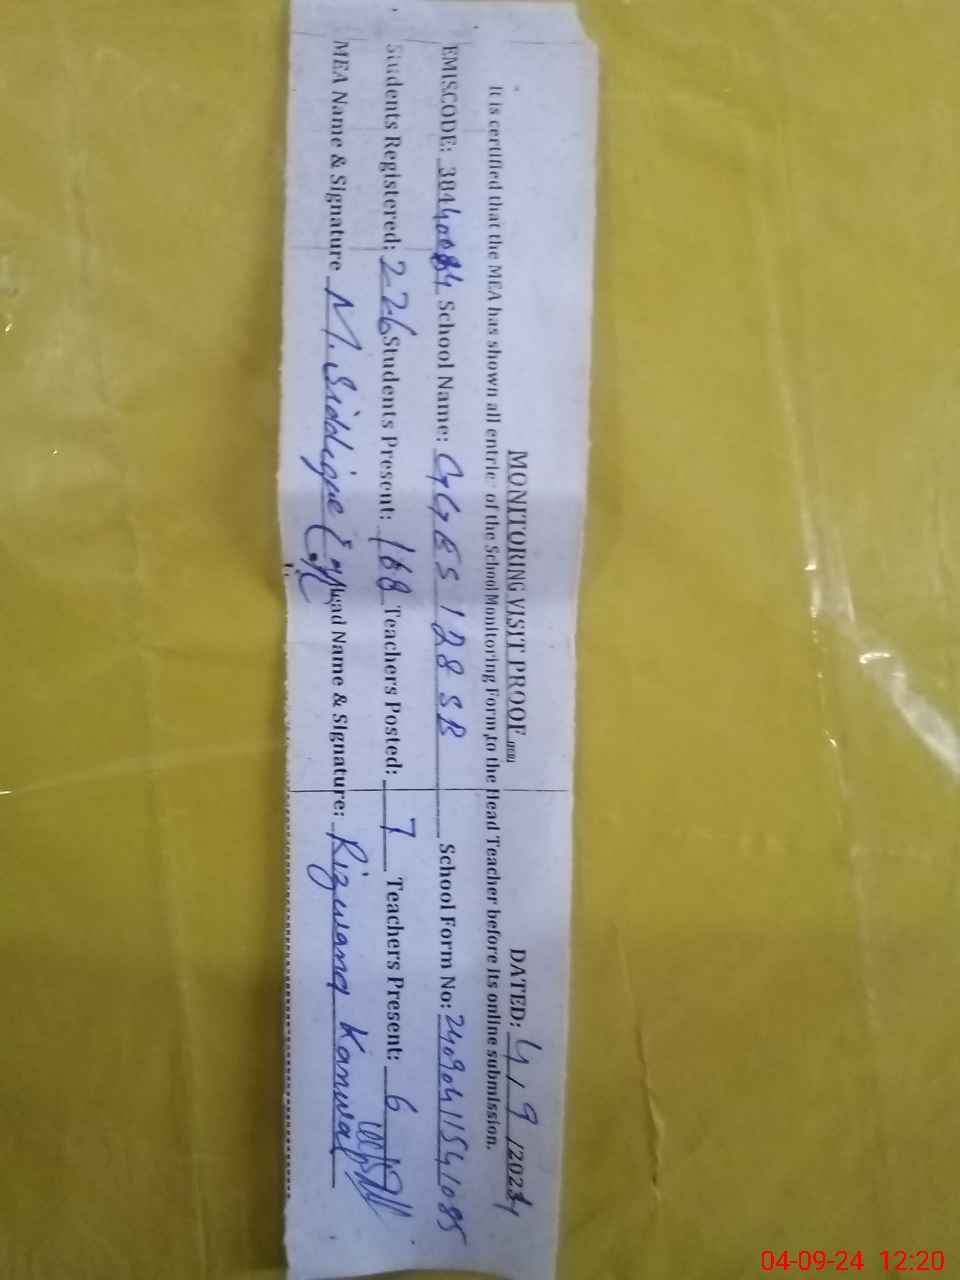 MONITORING VISIT PROOF DATED: 4/9/2024
It is certified that the MEA has shown all entries of the School Monitoring Form to the Head Teacher before its online submission.
EMISCODE: 38440084 School Name: GGES 128 SB School Form No: 24090411541085
Students Registered: 226 Students Present: 168 Teachers Posted: 7 Teachers Present: 6
MEA Name & Signature M. Siddique Head Name & Signature: Rizwana Kanwal
04-09-24 12:20